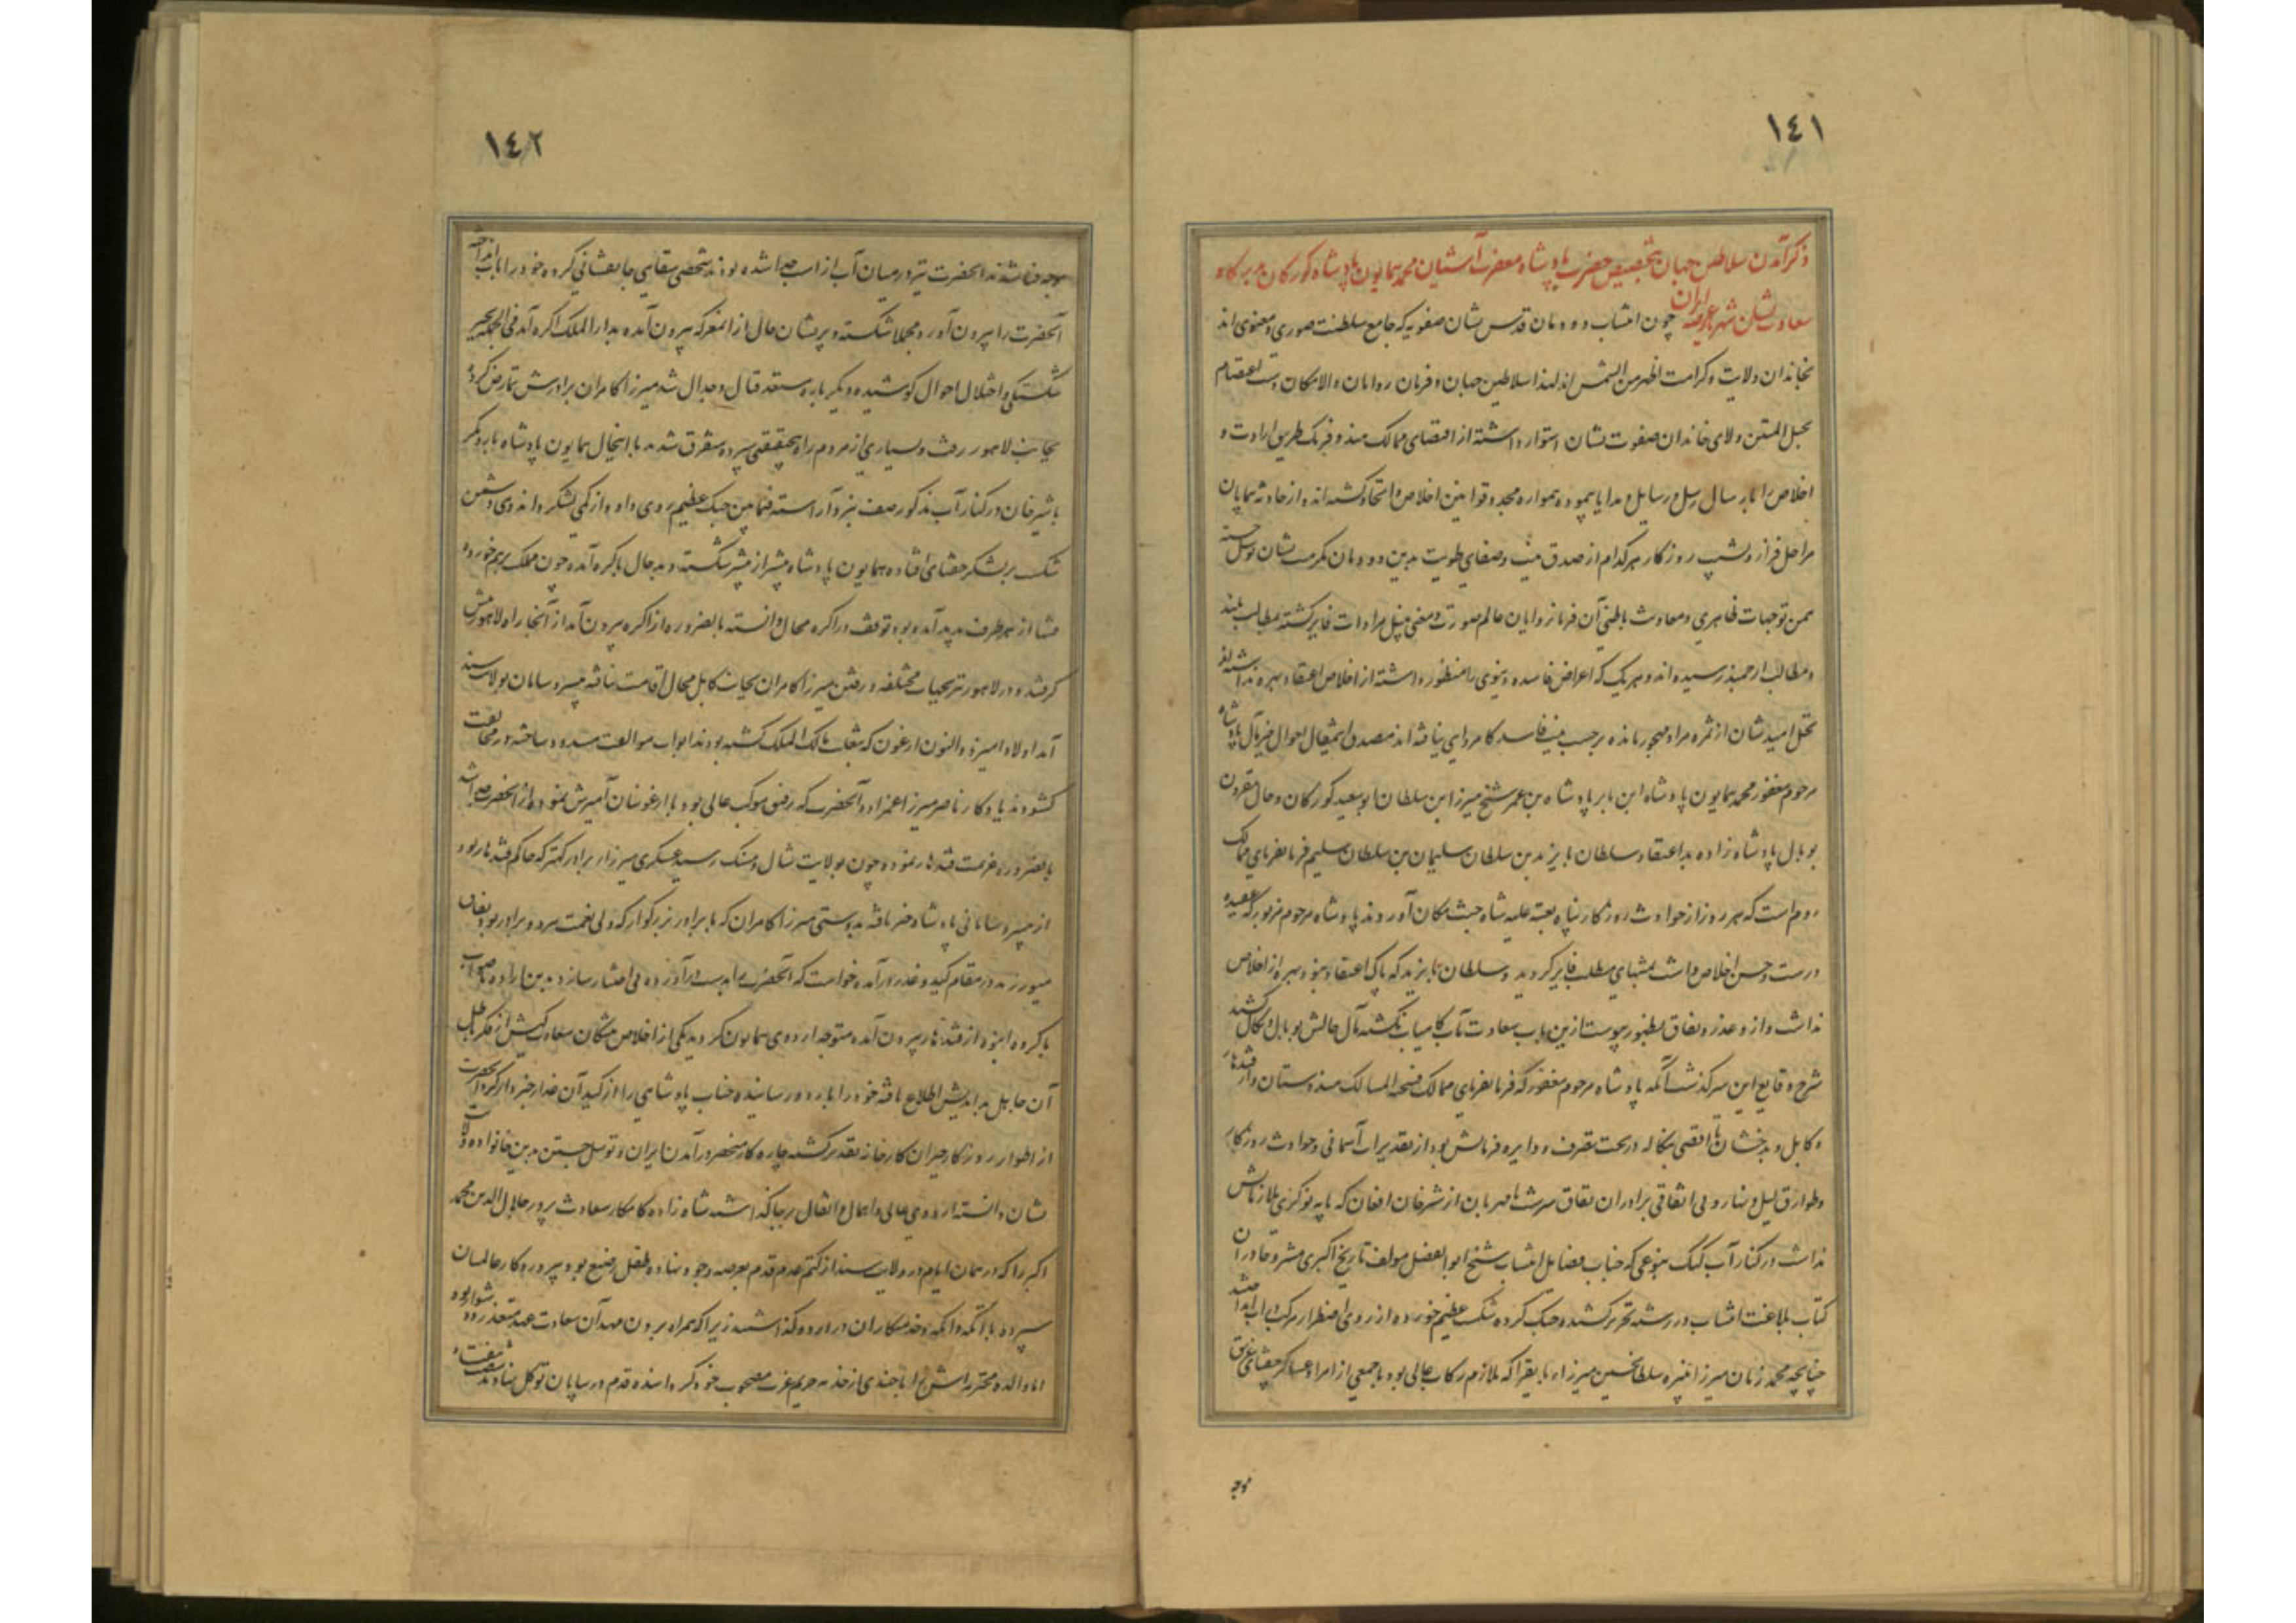 ١٤١
ذکر آمدن سلاطین جهان بتخصیص حضرت پادشاه مغفرت آشیان محمد همایون پادشاه کورکان بدرکاه
سعادت نشان شهریار عرصه ایران چون انتساب دودمان قدس نشان صفویه که جامع سلطنت صوری و معنوی اند
بخاندان ولایت و کرامت اظهر من الشمس اند لهذا سلاطین جهان و فرمان روایان والامکان دست اعتصام
بحبل المتین ولای خاندان صفوت نشان استوار داشته از اقصای ممالک هند و فرنک طریق ارادت و
اخلاص را بارسال رسل و رسایل و هدایا پیموده همواره مجدد قوانین اخلاص و اتحاد کشته اند و از حادثه پیمایان
مراحل فراز و نشیب روزکار هر کدام از صدق نیت و صفای طویت بدین دودمان مکرمت نشان توسل جسته
بیمن توجهات ظاهری و معاونت باطنی آن فرمانروایان عالم صورت و معنی بنیل مرادات فایز کشته بمطالب بلند
و مطالب ارجمند رسیده اند و هر یک که اغراض فاسده دنیوی را منظور داشته از اخلاص و اعتقاد بهره نداشته اند
نخل امیدشان از ثمره مراد مهجور مانده بر حسب نیت فاسد کامروایی نیافته اند مصدق این مقال احوال خیر مآل پادشاه
مرحوم مغفور محمد همایون پادشاه ابن بابر پادشاه بن عمر شیخ میرزا ابن سلطان ابوسعید کورکان و حال مقرون
بوبال پادشاه زاده بداعتقاد سلطان بایزید بن سلطان سلیمان بن سلطان سلیم فرمانفرمای ممالک
روم است که هر دو از حوادث روزکار پناه بعتبه علیه شاه جنت مکان آوردند پادشاه مرحوم مزبور که عقیده
درست و حسن اخلاص داشت بمنتهای مطلب فایز کردید و سلطان بایزید که پاک اعتقاد نبود و بهره از اخلاص
نداشت و ازو غدر و نفاق بظهور پیوست ازین باب سعادت مآب کامیاب نکشته مآل حالش بوبال و نکال کشید
شرح وقایع این سرکذشت آنکه پادشاه مرحوم مغفور که فرمانفرمای ممالک فسیح المسالک هندوستان و از قندهار
و کابل و بدخشان تا اقصی بنکاله در تحت تصرف و دایره فرمانش بود از تقدیرات آسمانی و حوادث روزکار
و طوارق لیل و نهار و بی اتفاقی برادران نفاق سرشت نامهربان از شیرخان افغان که پایه نوکری ملازمانش
نداشت در کنار آب کنک بنوعی که جناب فضایل انتساب شیخ ابوالفضل مولف تاریخ اکبری مشروحا در آن
کتاب بلاغت انتساب در رشته تحریر کشیده جنک کرده شکست عظیم خورده از روی اضطرار مرکب در آب انداختند
چنانچه محمد زمان میرزا نبیره سلطان حسین میرزاء بایقرا که ملازم رکاب عالی بود با جمعی از امرا و عساکر جغتای غریق
موجه
١٤٢
موجه فنا شدند آنحضرت نیز در میان آب از اسب جدا شده بودند شخصی سقایی جانفشانی کرده خود را بآب انداخته
آنحضرت را بیرون آورد مجملا شکسته و پریشان حال از آن معرکه بیرون آمده بدارالملک اکره آمد فی الجمله بجبر
شکستکی و اختلال احوال کوشیده دیکر باره مستعد قتال و جدال شد میرزا کامران برادرش تمارض کرده
بجانب لاهور رفت و بسیاری از مردم راه بیحقیقتی سپرده متفرق شدند با این حال همایون پادشاه بار دیکر
با شیرخان در کنار آب مذکور صف نبرد آراسته فیما بین جنک عظیم روی داد و از کمی لشکر و انبوهی دشمن
شکست بر لشکر جغتای افتاده همایون پادشاه بیشتر از پیشتر شکسته و بدحال باکره آمده چون ملک برهم خورده
فتنها از هر طرف پدید آمده بود توقف در اکره محال دانسته بالضروره از اکره بیرون آمد از آنجا راه لاهور پیش
کرفتند و در لاهور نیز بجهات مختلفه و رفتن میرزا کامران بجانب کابل مجال اقامت نیافته بی سر و سامان بولایت سند
آمد اولاد امیر ذوالنون ارغون که بتغلب مالک الملک کشته بودند ابواب موالفت مسدود ساخته در مخالفت
کشودند یادکار ناصر میرزا عمزاده آنحضرت که رفیق موکب عالی بود با ارغونیان آمیزش نموده از آنحضرت جدا شد
بالضروره عزیمت قندهار نموده چون بولایت شال و مستنک رسید عسکری میرزا برادر کهتر که حاکم قندهار بود
از بی سر و سامانی پادشاه خبر یافته بدوستی میرزا کامران که با برادر بزرکوار که ولی نعمت هر دو برادر بود نفاق
میورزید در مقام کید و غدر درآمده خواست که آنحضرت را بدست درآورده بی اعتبار سازد بدین اراده ناصواب
با کروه انبوه از قندهار بیرون آمده متوجه اردوی همایون کردید یکی از اخلاص منشان سعادت کیش از فکر باطل
آن جاهل بداندیش اطلاع یافته خود را باردو رسانیده جناب پادشاهی را از کید آن غدار خبردار کرد آنحضرت
از اطوار روزکار حیران کارخانه تقدیر کشته چاره کار منحصر در آمدن ایران و توسل جستن بدین خانواده ولایت
نشان دانسته اردوی عالی و احمال و اثقال بر جا کذاشته شاه زاده کامکار سعادت پرور جلال الدین محمد
اکبر را که در همان ایام در ولایت سند از کتم عدم قدم بعرصه وجود نهاده طفل رضیع بود بپروردکار عالمیان
سپرده با اتکه و انکه و خدمتکاران در اردو کذاشتند زیرا که همراه بردن مهد آن سعادت مهد متعذر و دشوار بود
اما والده محترمه اش را با چندی از خدمه حریم عزت مصحوب خود کردانیده قدم در بیابان توکل نهادند